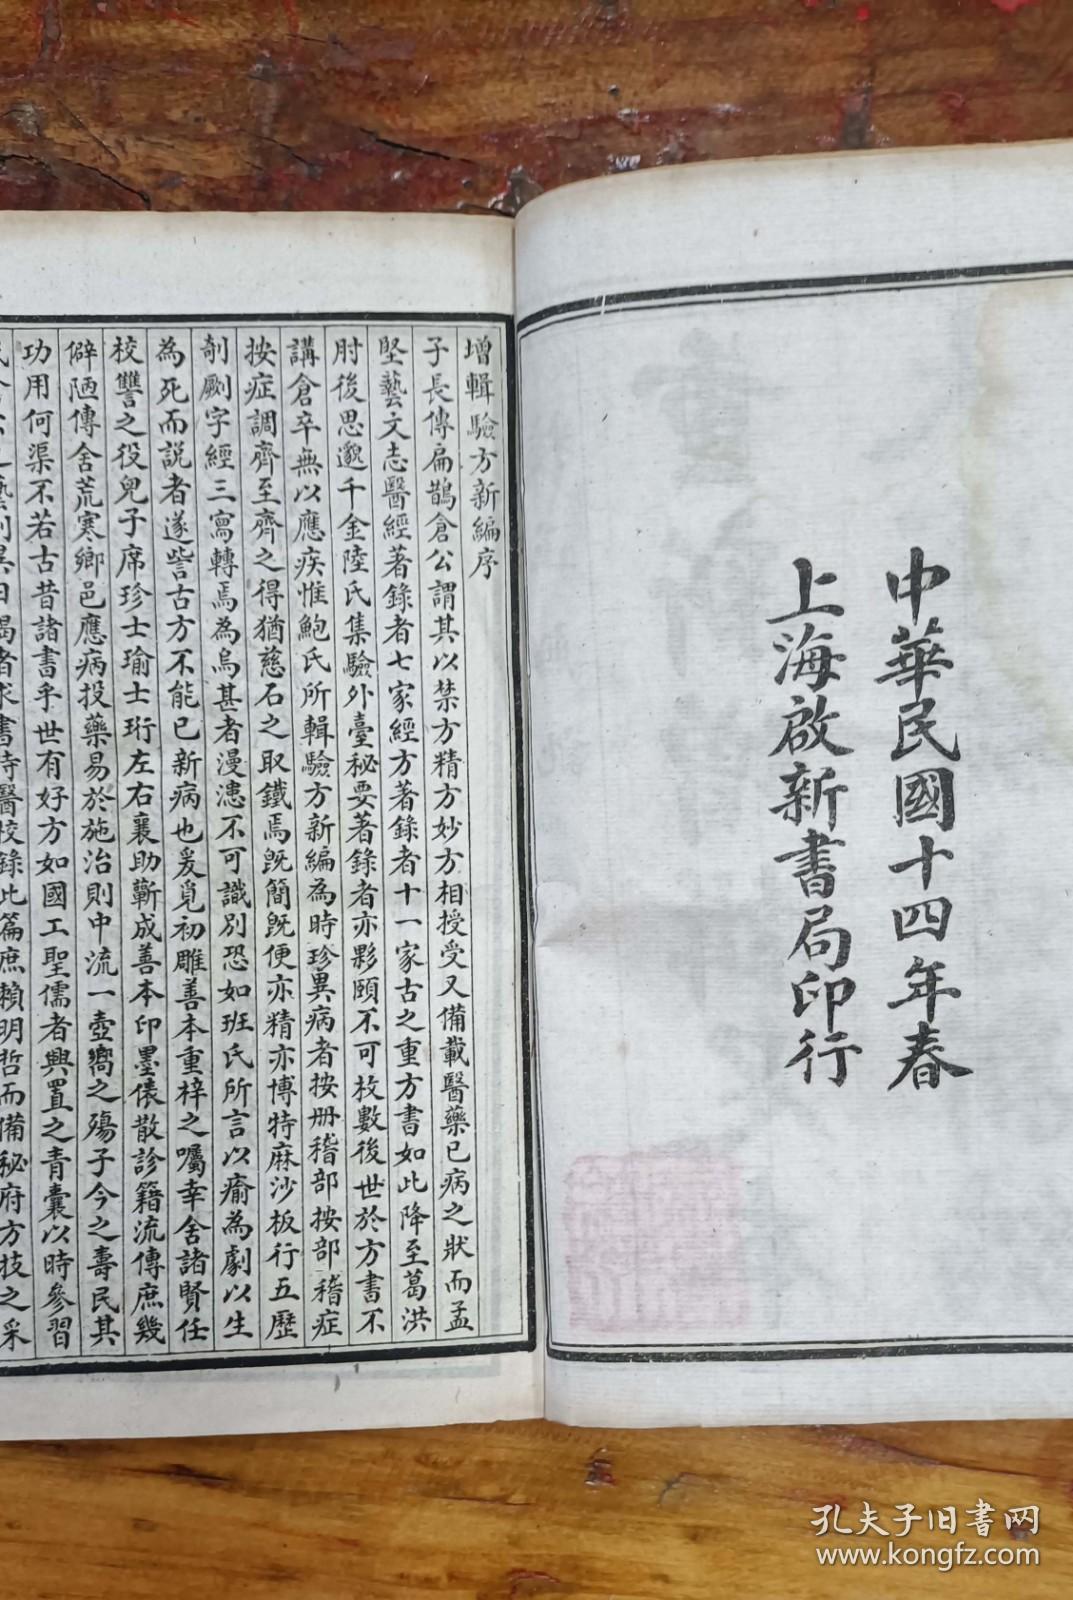 中華民國十四年春
上海啟新書局印行
增輯驗方新編序
子長傳扁鵲倉公謂其以禁方精方妙方相授受又備載醫藥已病之狀而孟
堅藝文志醫經著錄者七家經方著錄者十一家古之重方書如此降至葛洪
肘後思邈千金陸氏集驗外臺秘要著錄者亦夥頤不可枚數後世於方書不
講倉卒無以應疾惟鮑氏所輯驗方新編為時珍異病者按册稽部按部稽症
按症調齊至齊之得猶慈石之取鐵焉旣簡旣便亦精亦博特麻沙板行五歷
剞劂字經三寫轉焉為烏甚者漫漶不可識別恐如班氏所言以瘉為劇以生
為死而説者遂訾古方不能已新病也爰覓初雕善本重梓之囑幸舍諸賢任
校讐之役兒子席珍士瑜士珩左右襄助蘄成善本印墨俵散診籍流傳庶幾
僻陋傳舍荒寒鄉邑應病投藥易於施治則中流一壺嚮之殤子今之壽民其
功用何渠不若古昔諸書乎世有好方如國工聖儒者興置之青囊以時參習
書時醫校錄此篇庶賴明哲而備秘府方技之采
孔夫子旧书网
www.kongfz.com